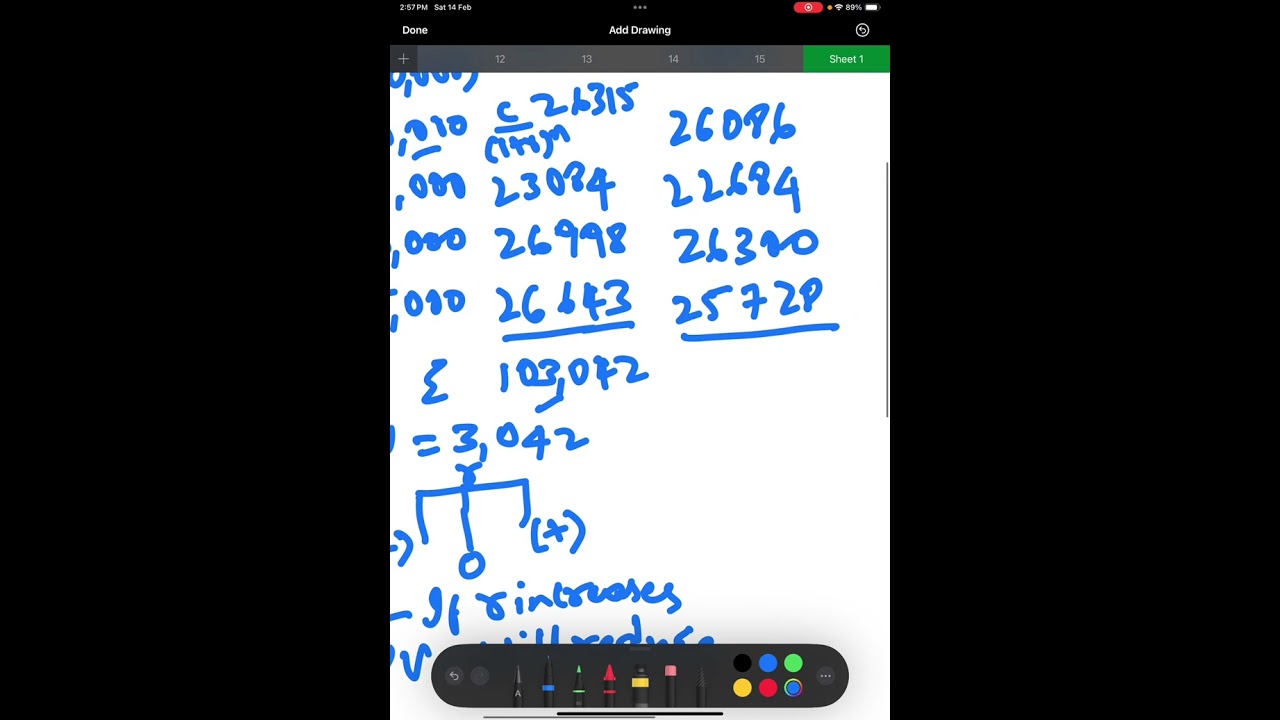 2:57 PM Sat 14 Feb 89%
Done Add Drawing
+ 12 13 14 15 Sheet 1
0,000)
,000 C 26315 26086
(1+r)^n
,000 23084 22684
,000 26998 26300
,000 26643 25728
Σ 103,042
= 3,042
r
(+)
0
- If r increases
will reduce
A